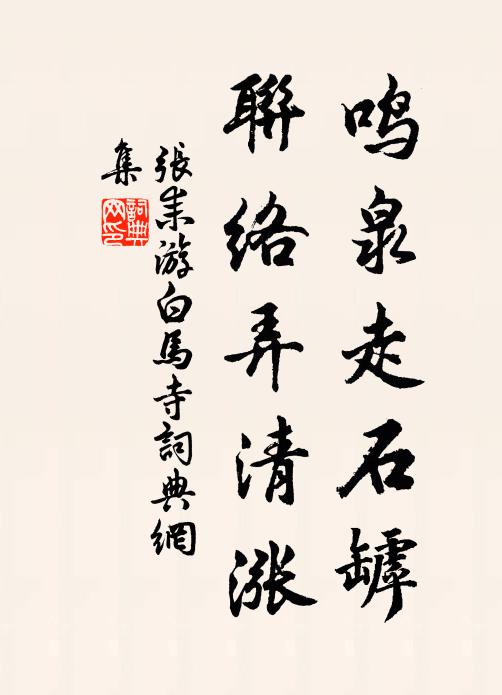 鸣泉走石罅
聯络弄清涨
張耒游白馬寺詞典網
集
詞典网印